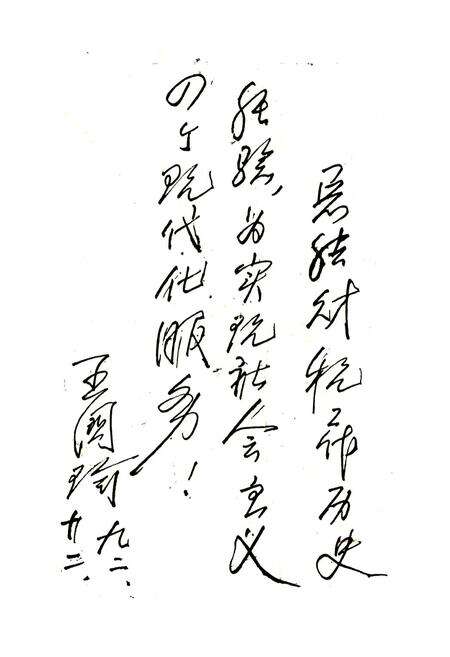 总结财税工作历史
经验，为实现社会主义
四个现代化服务！
王国
九二、